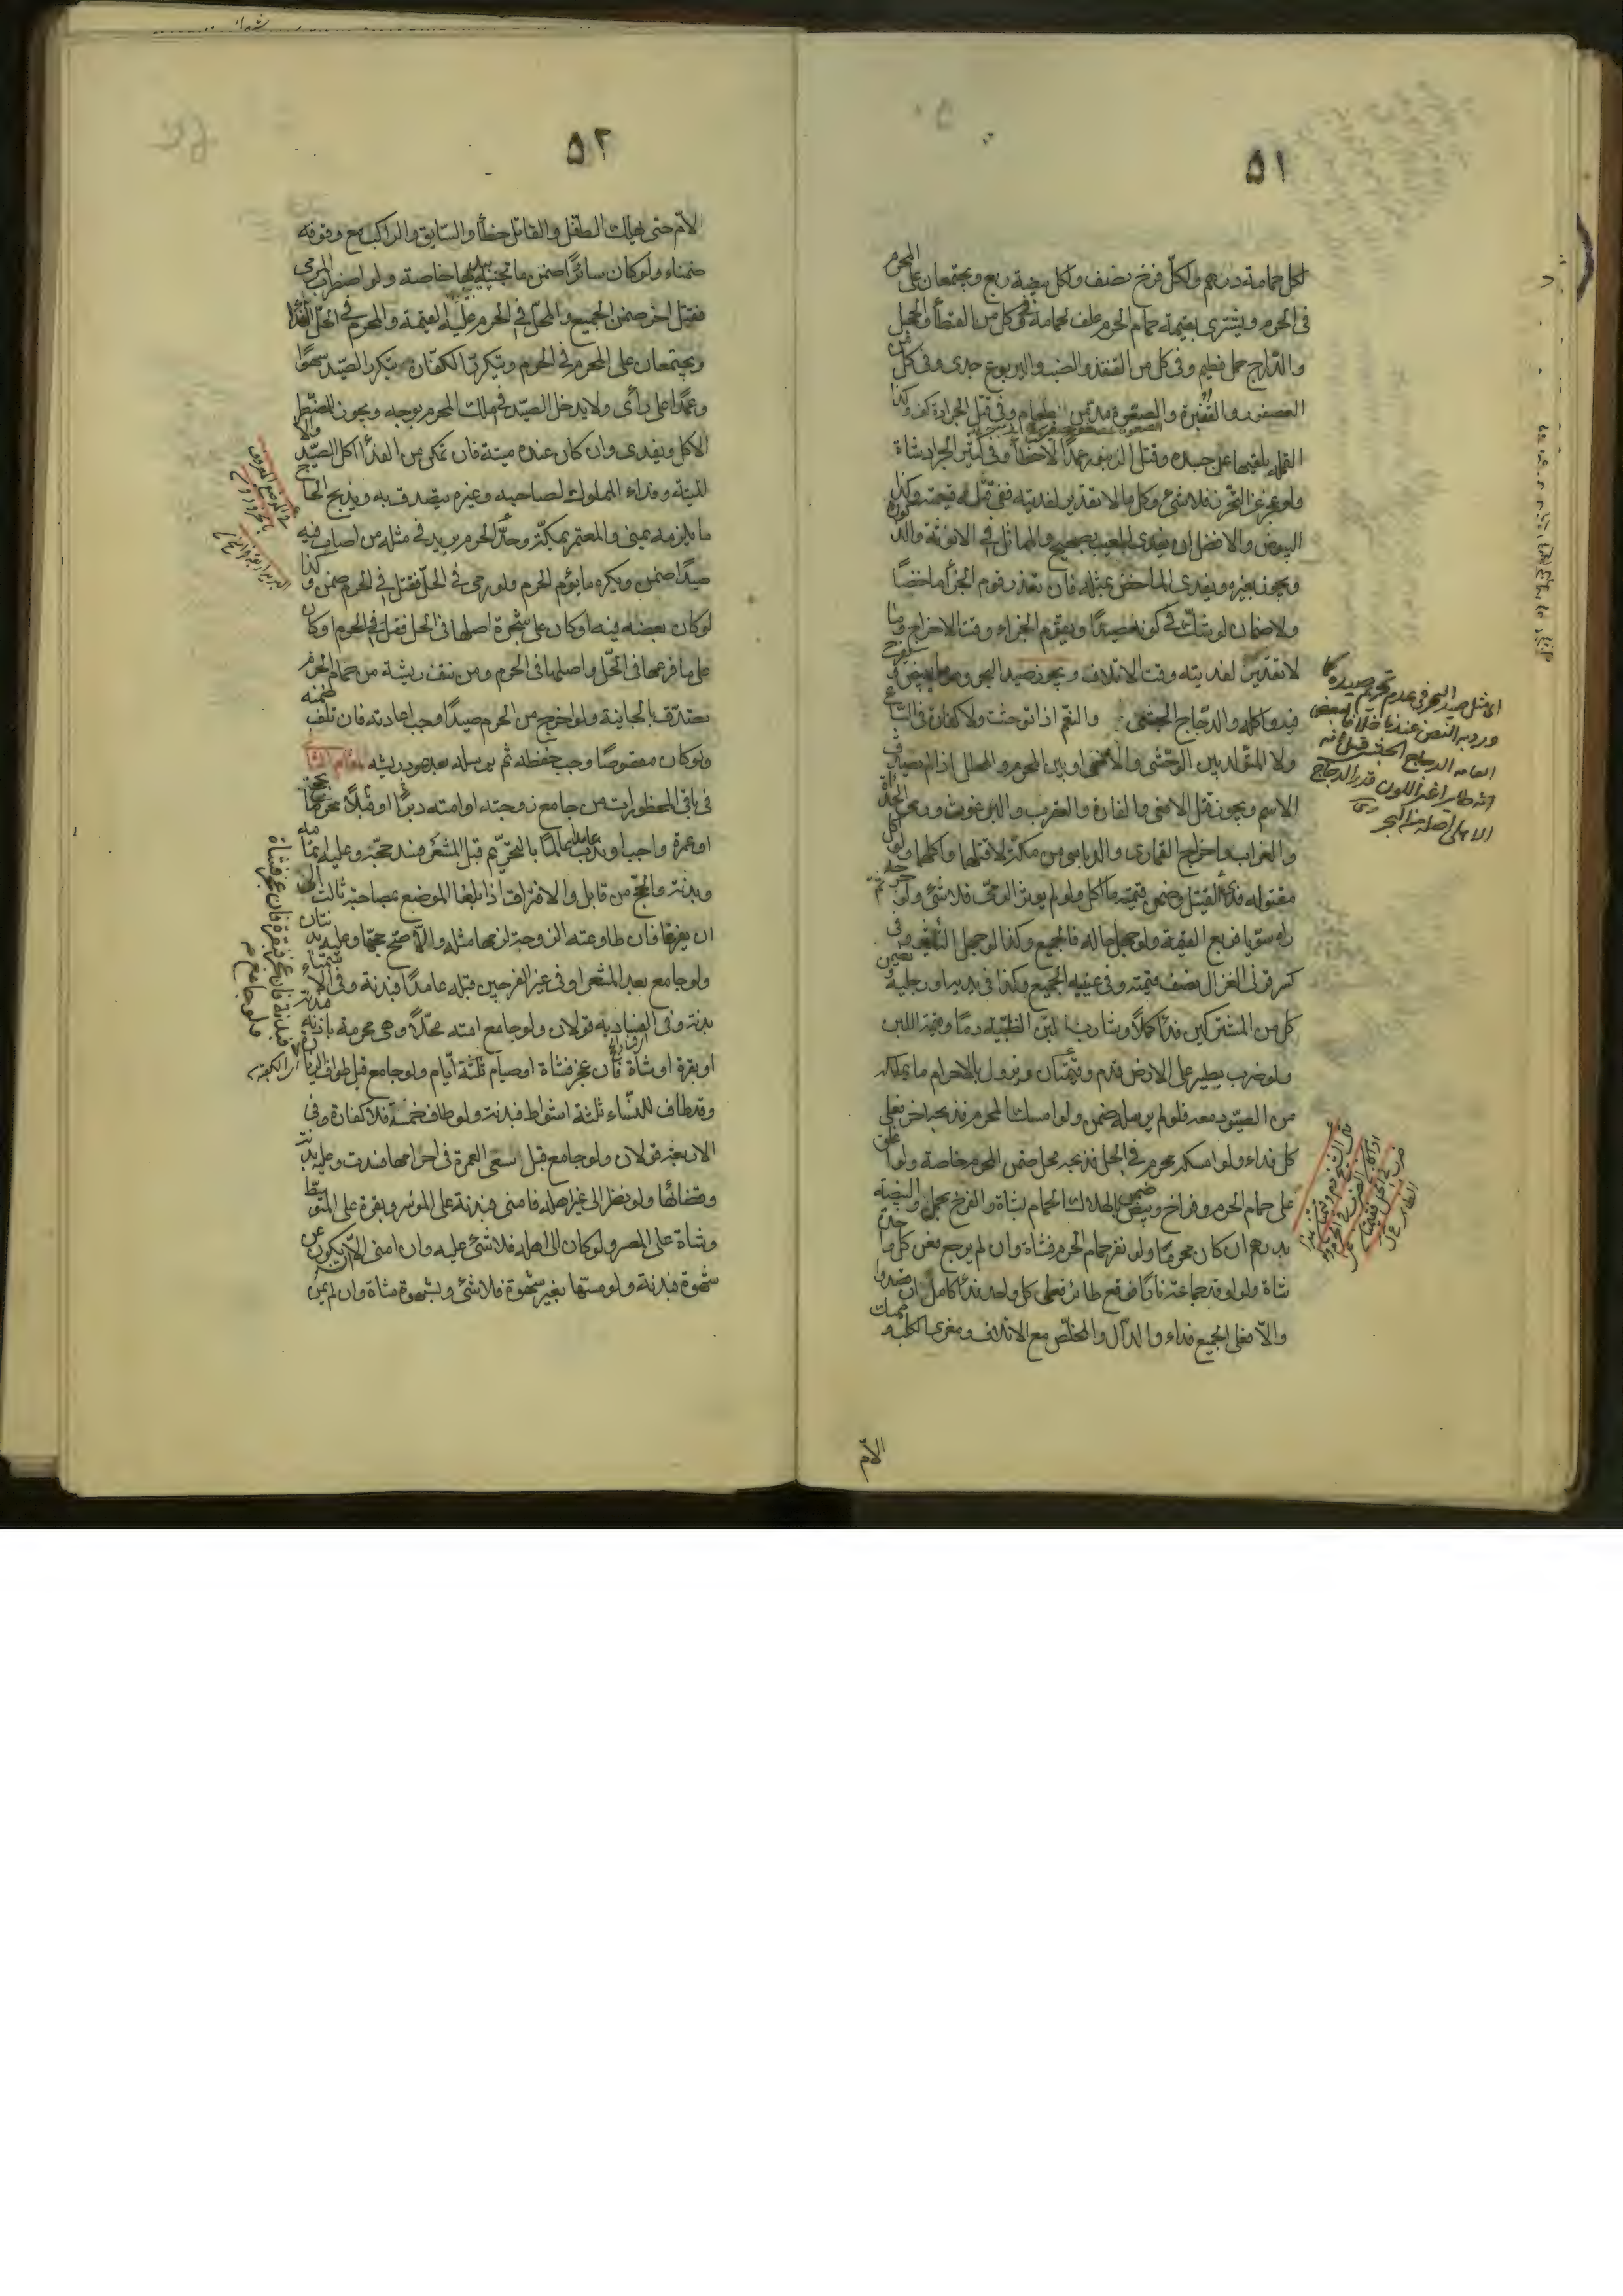 ٥١
لكل حمامة درهم ولكل فرخ نصف ولكل بيضة ربع ويجتمعان على المحرم
فى الحرم ويشترى بقيمة حمام الحرم علف لحمامه وفى كل من القطا والحجل
والدراج حمل فطيم وفى كل من القنفذ والضب واليربوع جدى وفى كل من
العصفور والقنبرة والصعوة مد من طعام وفى قتل الجرادة كف وكذا
القملة يلقيها عن جسده وقتل الزنبور عمدا لا خطأ وفى كثير الجراد شاة
ولو عجز عن التحرز فلا شئ وكل ما لا تقدير لفديته ففى قتله قيمته وكذا
البيوض والافضل ان يفدى المعيب بصحيح والمماثل فى الانوثة والذكورة
ويجوز بغيره ويفدى الماخض بمثله فان تعذر قوم الجزأ ماخضا
ولا ضمان لو شك فى كونه صيدا ويقوم الجزاء وقت الاخراج وما
لا تقدير لفديته وقت الاتلاف ويجوز صيد البحر وهو ما يبيض ويفرخ
فيه واكله والدجاج الحبشى والنعم اذا توحشت ولا كفارة فى السباع
ولا المتولد بين الوحشى والانسى او بين المحرم والمحلل اذا لم يصدق
الاسم ويجوز قتل الافعى والفارة والعقرب والبرغوث ورمى الحدأة
والغراب واخراج القمارى والدباسى من مكة لا قتلها واكلها ولو اكل
مقتوله فدى القتيل وضمن قيمة ما اكل ولو لم يؤثر الرمى فلا شئ ولو جرحه ثم
راه سويا فربع القيمة ولو جهل حاله فالجميع وكذا لو جهل التأثير وفى
كسر قرنى الغزال نصف قيمته وفى عينيه الجميع وكذا فى يديه او رجليه وتضمن
كل من المشتركين فدأ كملا وشارب لبن الظبية دما وقيمة اللبن
ولو ضرب بطير على الارض فدم وقيمتان ويزول بالاحرام ما يملكه
من الصيود معه فلو لم يرسله ضمن ولو امسك المحرم فذبحه اخر فعلى
كل فداء ولو امسكه محرم فى الحل فذبحه محل ضمن المحرم خاصة ولو اغلق
على حمام الحرم وفراخ وبيض ضمن بالهلاك الحمام بشاة والفرخ بحمل والبيضة
بدرهم ان كان محرما ولو نفر حمام الحرم فشاة وان لم يرجع فعن كل واحدة
شاة ولو اوقد جماعة نارا فوقع طائر فعلى كل واحد فدأ كامل ان قصدوا
والا فعلى الجميع فداء والدال والمخلص مع الاتلاف ومغرى الكلب وممسك
الام
اى مثل صيد البحر فى عدم تحريم صيده كما
ورد به النص عندنا خلافا لبعض
العامه الدجاج الحبشى قيل انه
انه طاير اغبر اللون قدر الدجاج
الاهلى اصله من البحر
٥٢
الام حتى يهلك الطفل والقاتل خطأ والسايق والراكب مع وقوفه
ضمناء ولو كان سائرا ضمن ما تجنيه بيديها خاصة ولو اضطرب المرمى
فقتل اخر ضمن الجميع والمحل فى الحرم عليه القيمة والمحرم فى الحل الفدأ
ويجتمعان على المحرم فى الحرم وتتكرر الكفارة بتكرر الصيد سهوا
وعمدا على رأى ولا يدخل الصيد فى ملك المحرم بوجه ويجوز للمضطر
الاكل ويفدى وان كان عنده ميتة فان تمكن من الفدأ اكل الصيد والا
الميتة وفداء المملوك لصاحبه وغيره يتصدق به ويذبح الحاج
ما يلزمه بمنى والمعتمر بمكة وحد الحرم بريد فى مثله من اصاب فيه
صيدا ضمن ويكره ما يؤم الحرم ولو رمى فى الحل فقتل فى الحرم ضمن وكذا
لو كان بعضه فيه او كان على شجرة اصلها فى الحل فقتل فى الحرم او كان
على ما فرعها فى الحل واصلها فى الحرم ومن نتف ريشة من حمام الحرم
تصدق بالجانية ولو اخرج من الحرم صيدا وجب اعادته فان تلف ضمنه
ولو كان مقصوصا وجب حفظه ثم يرسله بعد عود ريشه
فى باقى المحظورات من جامع زوجته او امته دبرا او قبلا محرما بحج
او عمرة واجبا وندبا عامدا عالما بالتحريم قبل المشعر فسد حجه وعليه اتمامه
وبدنة والحج من قابل والافتراق اذا بلغا الموضع بمصاحبة ثالث الى
ان يفرغا فان طاوعته الزوجة لزمها مثله والا صح حجها وعليه بدنتان
ولو جامع بعد المشعر او فى غير الفرجين قبله عامدا فبدنة وفى الاستمناء
بدنة وفى الفساد به قولان ولو جامع امته محلا وهى محرمة باذنه فبدنة
او بقرة او شاة فان عجز فشاة او صيام ثلثة ايام ولو جامع قبل طواف الزيارة
وقد طاف للنساء ثلثة اشواط فبدنة ولو طاف خمسة فلا كفارة وفى
الاربعة قولان ولو جامع قبل سعى العمرة فى احرامها فسدت وعليه بدنة
وقضائها ولو نظر الى غير اهله فامنى فبدنة على الموسر وبقرة على المتوسط
وشاة على المعسر ولو كان الى اهله فلا شئ عليه وان امنى الا ان يكون عن
شهوة فبدنة ولو مسها بغير شهوة فلا شئ وبشهوة شاة وان لم يمن
فبدنة فان عجز فبقرة فان عجز فشاة
ولو جامع